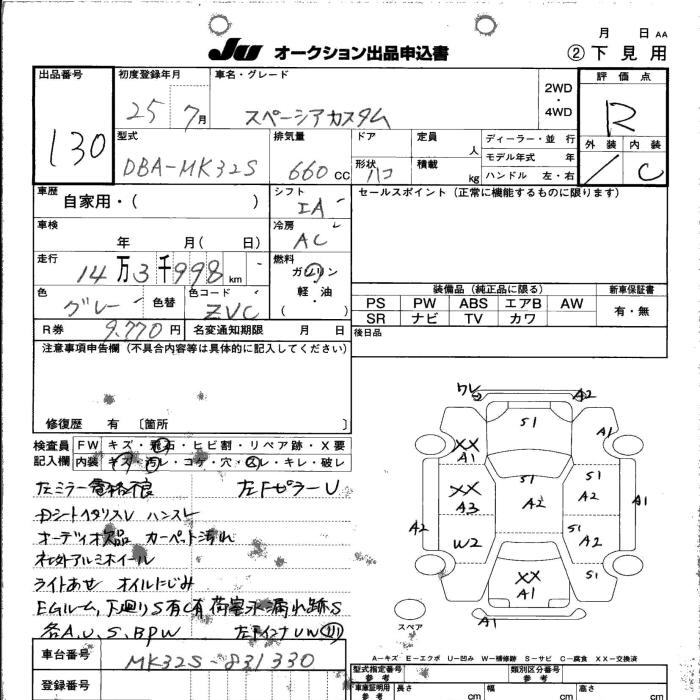 月 日 AA
JU オークション出品申込書 ②下見用
出品番号 初度登録年月 車名・グレード 2WD ・ 4WD 評価点
130 25 7月 スペーシアカスタム R
型式 排気量 ドア 定員 人 ディーラー・並 行 外装 内装
DBA-MK32S 660cc 形状 ハコ 積載 kg モデル年式 年 / C
ハンドル 左・右
車歴 自家用・( ) シフト IA セールスポイント(正常に機能するものに限ります)
車検 年 月( 日) 冷房 AC
走行 14万3千998km 燃料 ガソリン 軽・油 ( )
色 グレー 色替 色コード ZVC
装備品(純正品に限る) 新車保証書
PS PW ABS エアB AW 有・無
SR ナビ TV カワ
R券 9,770円 名変通知期限 月 日 後日品
注意事項申告欄(不具合内容等は具体的に記入してください)
修復歴 有 〔箇所 〕
検査員 FW キズ・飛石・ヒビ割・リペア跡・X要
記入欄 内装 キズ・汚レ・コゲ・穴・スレ・キレ・破レ
左ミラー電格不良 左FピラーU
Dシートヘタリスレ ハンスレ
オーディオ欠品 カーペット汚れ
社外アルミホイール
ライトあせ オイルにじみ
EGルーム,下廻りS有C有 荷室水漏れ跡S
各A.U.S.BPW
車台番号 MK32S-831330
登録番号
ワレ A2
S1
XX A1 A1
S1 S1
XX A3 A2 A2 A1
A2 W2 S1 A2
XX A1 S1
スペア A1
A-キズ E-エクボ U-凹み W-補修跡 S-サビ C-腐食 XX-交換済
型式指定番号 参考 類別区分番号 参考
車庫証明用 参考 長さ cm 幅 cm 高さ cm